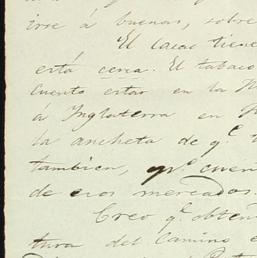 irse á buenas, sobre
El cacao tiene
está cerca. El tabaco
cuento estar en la
á Inglaterra en
la ancheta de qe.
tambien, cuen
de esos mercados.
Creo qe. obten
tura del Camino e